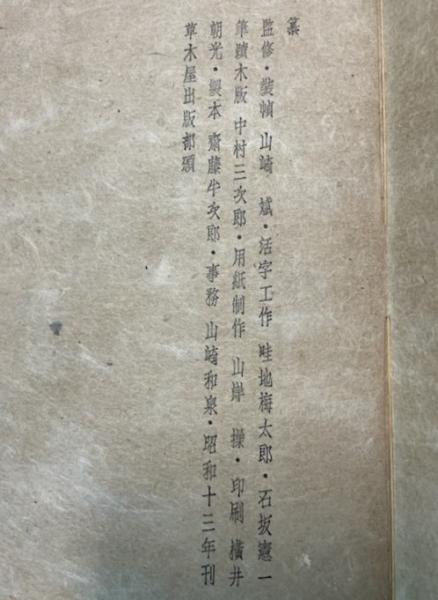 纂
監修・装幀 山崎 斌・活字工作 畦地梅太郎・石坂憲一
筆蹟木版 中村三次郎・用紙制作 山岸 操・印刷 横井
朝光・製本 齋藤牛次郎・事務 山崎和泉・昭和十三年刊
草木屋出版部頒